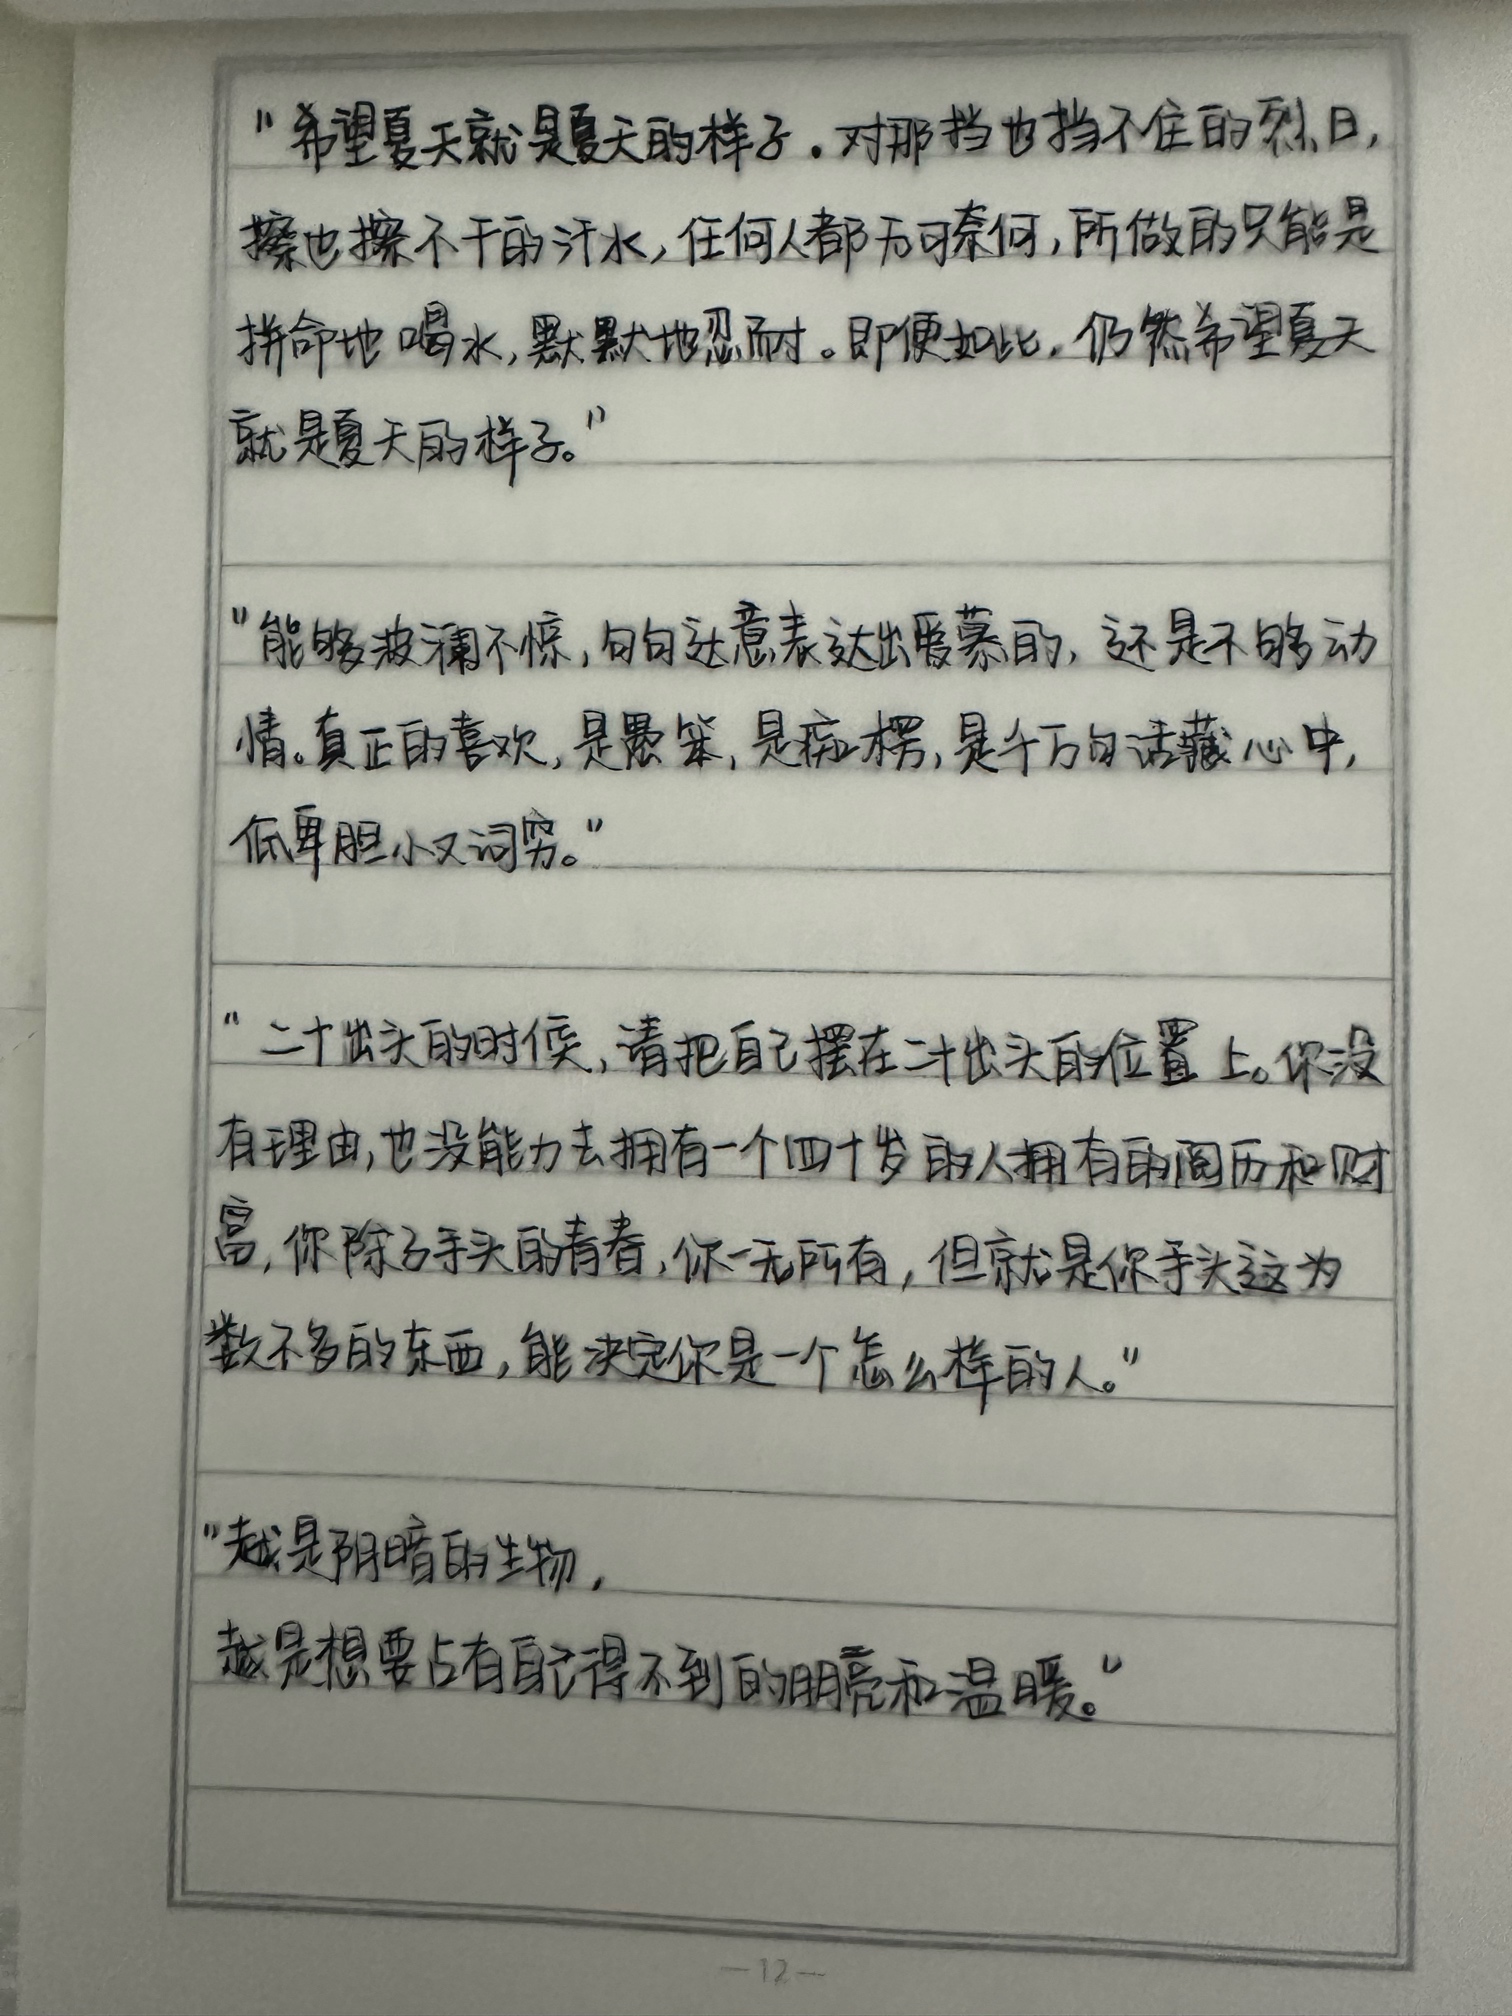 "希望夏天就是夏天的样子。对那挡也挡不住的烈日,
擦也擦不干的汗水,任何人都无可奈何,所做的只能是
拼命地喝水,默默地忍耐。即便如此,仍然希望夏天
就是夏天的样子。"
"能够波澜不惊,句句达意表达出爱慕的,还是不够动
情。真正的喜欢,是愚笨,是痴楞,是千万句话藏心中,
低卑胆小又词穷。"
"二十出头的时候,请把自己摆在二十出头的位置上。你没
有理由,也没能力去拥有一个四十岁的人拥有的阅历和财
富,你除了手头的青春,你一无所有,但就是你手头这为
数不多的东西,能决定你是一个怎么样的人。"
"越是阴暗的生物,
越是想要占有自己得不到的明亮和温暖。"
—12—